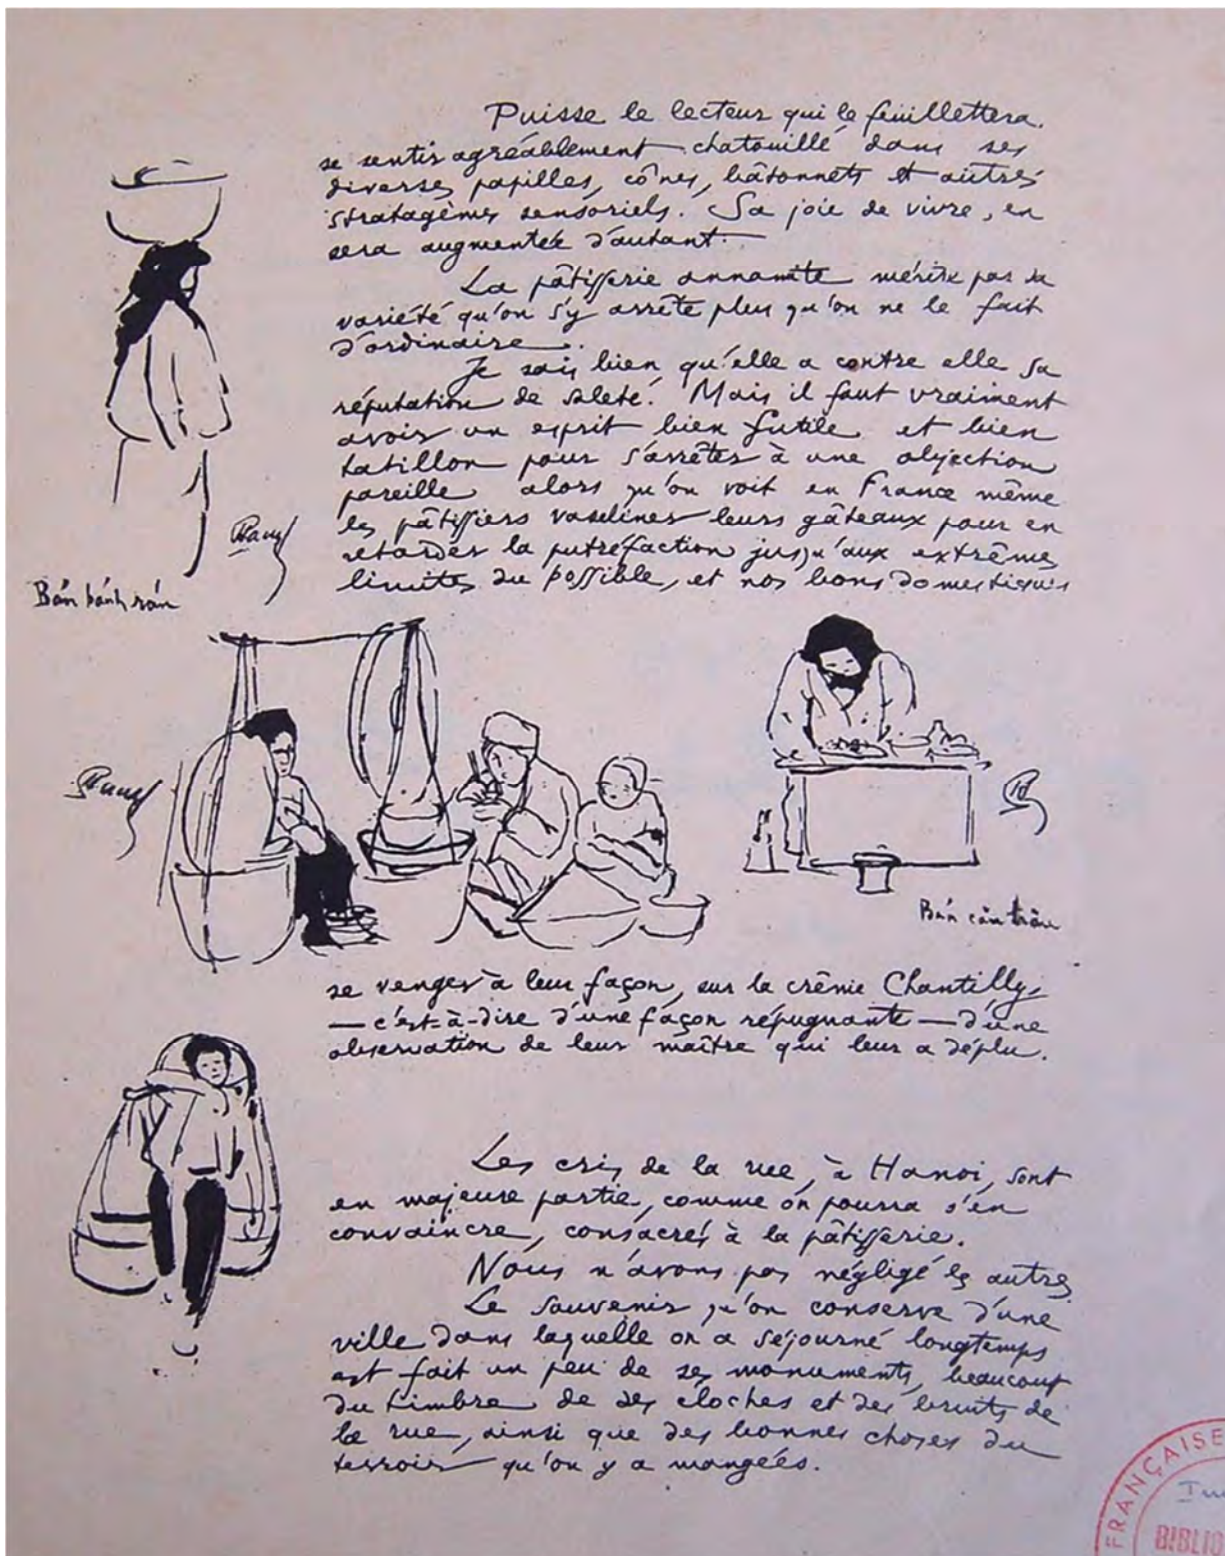 Puisse le lecteur qui le feuillettera
se sentir agréablement chatouillé dans ses
diverses papilles, cônes, bâtonnets et autres
stratagèmes sensoriels. Sa joie de vivre, en
sera augmentée d'autant.
La pâtisserie annamite mérite par sa
variété qu'on s'y arrête plus qu'on ne le fait
d'ordinaire.
Je sais bien qu'elle a contre elle sa
réputation de saleté. Mais il faut vraiment
avoir un esprit bien futile et bien
tatillon pour s'arrêter à une objection
pareille alors qu'on voit en France même
les pâtissiers vaseliner leurs gâteaux pour en
retarder la putréfaction jusqu'aux extrêmes
limites du possible, et nos bons domestiques
Bán bánh rán
Bán
se venger à leur façon, sur la crème Chantilly,
— c'est-à-dire d'une façon répugnante — d'une
observation de leur maître qui leur a déplu.
Les cris de la rue, à Hanoi, sont
en majeure partie, comme on pourra s'en
convaincre, consacrés à la pâtisserie.
Nous n'avons pas négligé les autres
Le souvenir qu'on conserve d'une
ville dans laquelle on a séjourné longtemps
est fait un peu de ses monuments, beaucoup
du timbre de ses cloches et des bruits de
la rue, ainsi que des bonnes choses du
terroir qu'on y a mangées.
FRANÇAISE
BIBLIO